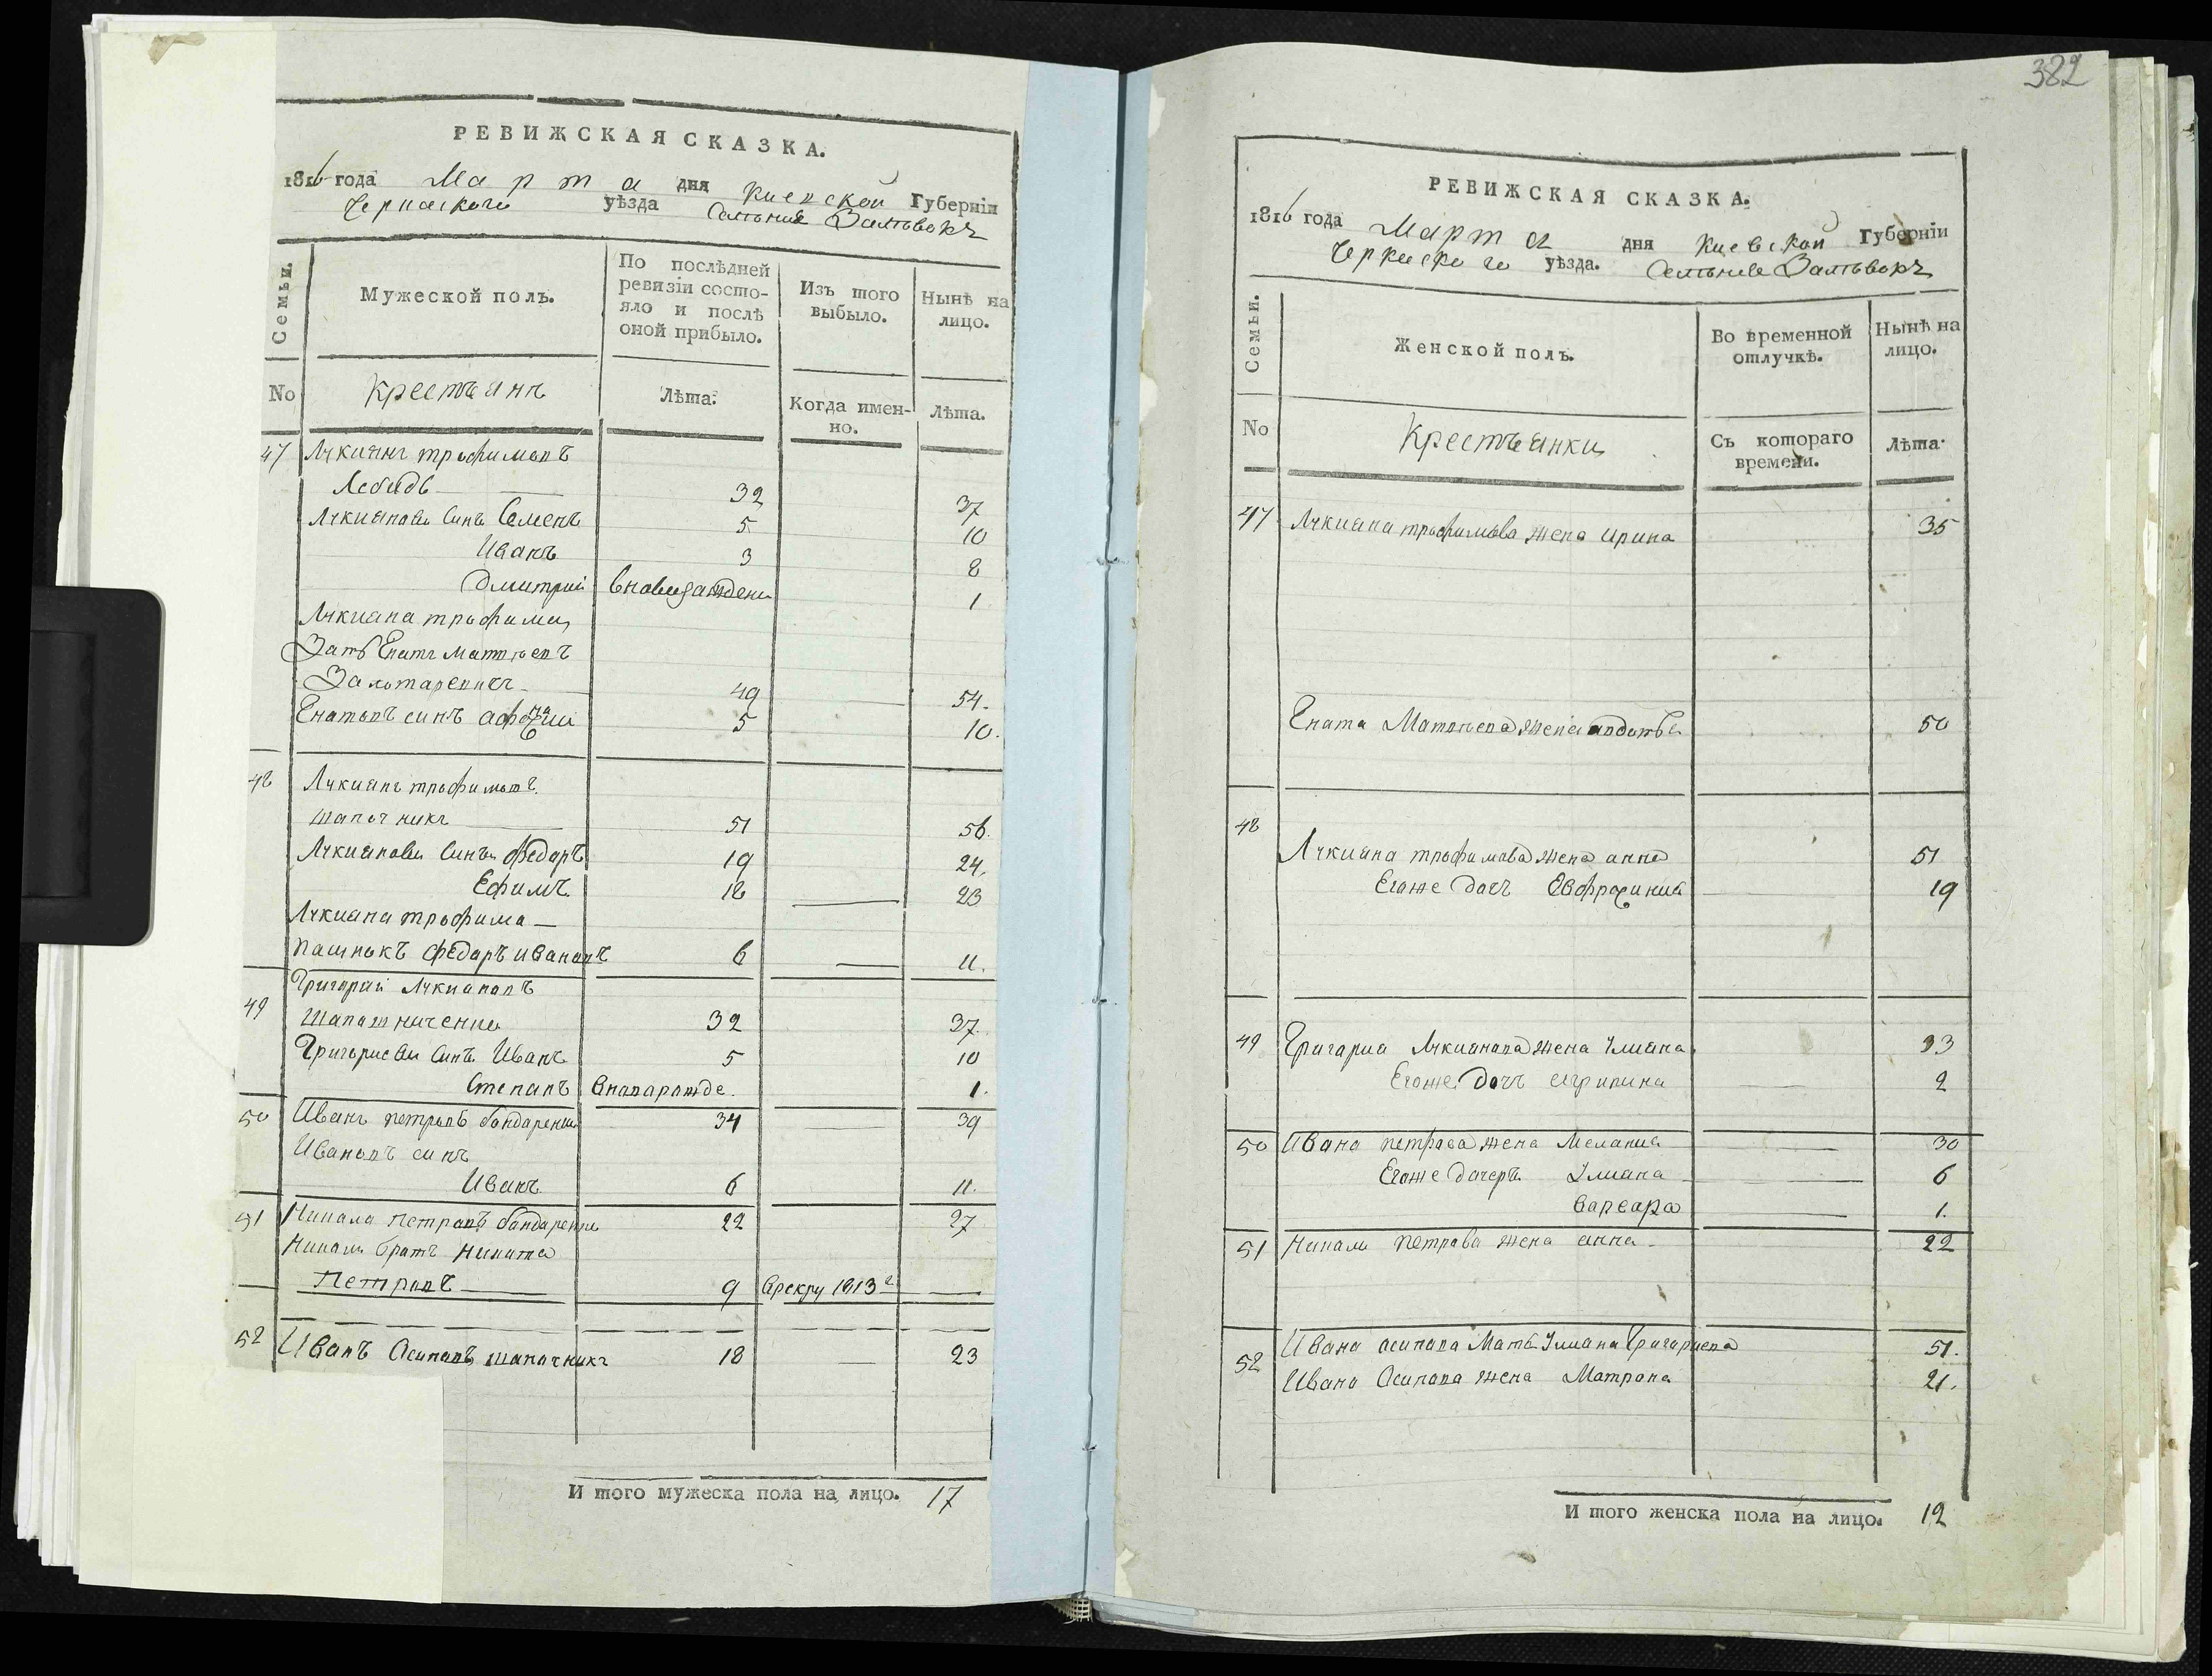 РЕВИЖСКАЯ СКАЗКА.
1816 года Марта дня Киевской Губерніи
Черкаского уѣзда
Семьи.
Мужеской полъ.
По послѣдней ревизіи состояло и послѣ оной прибыло.
Изъ того выбыло.
Нынѣ на лицо.
No Крестъяне Лѣта. Когда именно. Лѣта.
47 Лукиянъ трофимовъ
Лебидь 32 37
Лукиянови Синъ Семенъ 5 10
Иванъ 3 8
Дмитрий 1
Лукияна трофима
Зать Гнатъ Матвѣевъ
49 54.
Гнатовъ синъ 5 10.
48 Лукиянъ трофимовъ
шапочникъ 51 56.
Лукиянови Сины Федоръ 19 24.
Ефимъ 18 23
Лукияна трофима
Федоръ Ивановъ 6 11.
49 Григорий Лукияновъ
32 37.
Григориеви Синъ Иванъ 5 10
Степанъ 1.
50 Иванъ петровъ бондаренко 34 39
Ивановъ синъ
Иванъ 6 11.
51 петровъ бондаренко 22 27
братъ Никита
Петровъ 9 Врекру 1813 г
52 Иванъ Осиповъ шапочникъ 18 23
И того мужеска пола на лицо. 17
382
РЕВИЖСКАЯ СКАЗКА.
1816 года Марта дня Киевской Губерніи
Черкаского уѣзда.
Семьи.
Женской полъ.
Во временной отлучкѣ.
Нынѣ на лицо.
No Крестъянки Съ котораго времени. Лѣта.
47 Лукияна трофимова жена ирина 35
Гната Матвѣева жена 50
48
Лукияна трофимова жена анна 51
Егоже дочъ Евфросиния 19
49 Григория Лукиянова жена Улияна 33
Егоже дочъ 2
50 Ивана петрова жена Мелания 30
Егоже дочеръ Улияна 6
варвара 1.
51 петрова жена анна 22
52 Ивана осипова Мать Улияна Григориева 51.
Ивана Осипова жена Матрона 21.
И того женска пола на лицо. 12